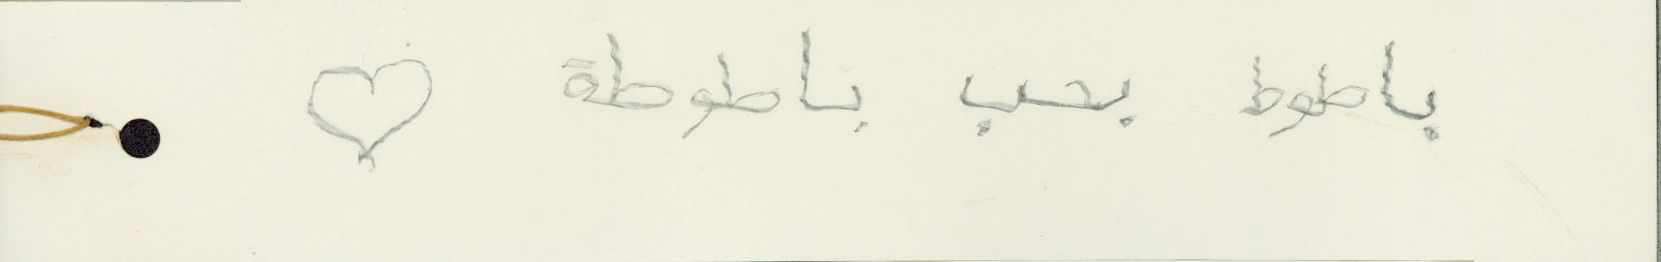 باطوط بحب باطوطة